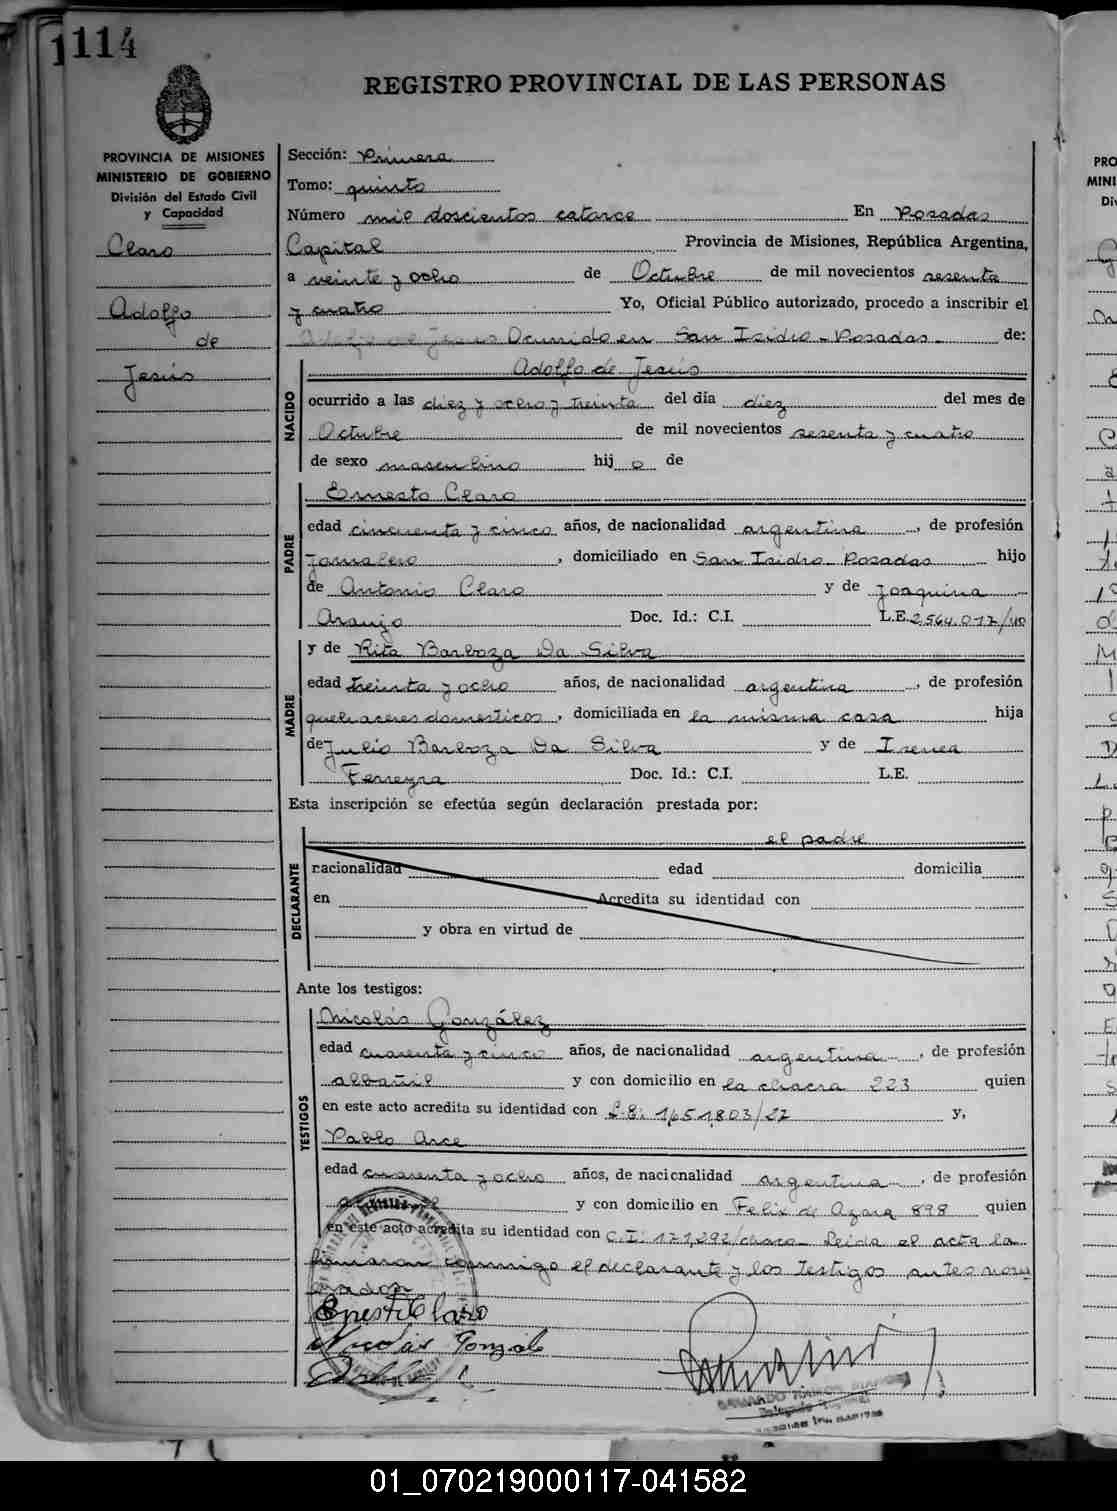 114
REGISTRO PROVINCIAL DE LAS PERSONAS
PROVINCIA DE MISIONES
MINISTERIO DE GOBIERNO
División del Estado Civil
y Capacidad
Claro
Adolfo
de
Jesús
Sección: Primera
Tomo: quinto
Número mil doscientos catorce En Posadas
Capital Provincia de Misiones, República Argentina,
a veinte y ocho de Octubre de mil novecientos sesenta
y cuatro Yo, Oficial Público autorizado, procedo a inscribir el
Adolfo de Jesus Ocurrido en San Isidro - Posadas - de:
NACIDO
Adolfo de Jesús
ocurrido a las diez y ocho y treinta del día diez del mes de
Octubre de mil novecientos sesenta y cuatro
de sexo masculino hij o de
PADRE
Ernesto Claro
edad cincuenta y cinco años, de nacionalidad argentina, de profesión
Jornalero, domiciliado en San Isidro - Posadas hijo
de Antonio Claro y de Joaquina
Araujo Doc. Id.: C.I. L.E. 2.564.017/40
MADRE
y de Rita Barboza Da Silva
edad treinta y ocho años, de nacionalidad argentina, de profesión
quehaceres domesticos, domiciliada en la misma casa hija
de Julio Barboza Da Silva y de Irenea
Ferreyra Doc. Id.: C.I. L.E.
Esta inscripción se efectúa según declaración prestada por:
DECLARANTE
el padre
nacionalidad edad domicilia
en Acredita su identidad con
y obra en virtud de
Ante los testigos:
TESTIGOS
Nicolás González
edad cuarenta y cinco años, de nacionalidad argentina, de profesión
albañil y con domicilio en la chacra 223 quien
en este acto acredita su identidad con L.E: 1.651.803/27 y,
Pablo Arce
edad cuarenta y ocho años, de nacicnalidad argentina, de profesión
y con domicilio en Felix de Azara 898 quien
en este acto acredita su identidad con C.I: 171,292/chaco - Leída el acta la
firmaron conmigo el declarante y los testigos antes nom
brados
Ernesto Claro
Nicolás Gonzále
01_070219000117-041582